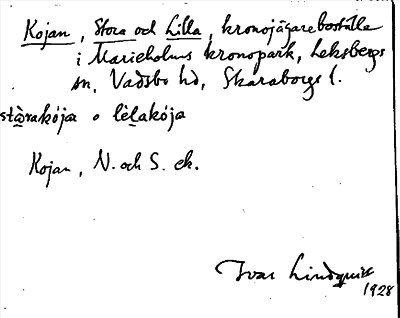 Kojan, Stora och Lilla, kronojägareboställe
i Marieholms kronopark, Leksbergs
sn, Vadsbo hd, Skaraborgs l.
stò̱rakója o lèḻakója
Kojan, N. och S. ek.
Ivar Lindquist
1928